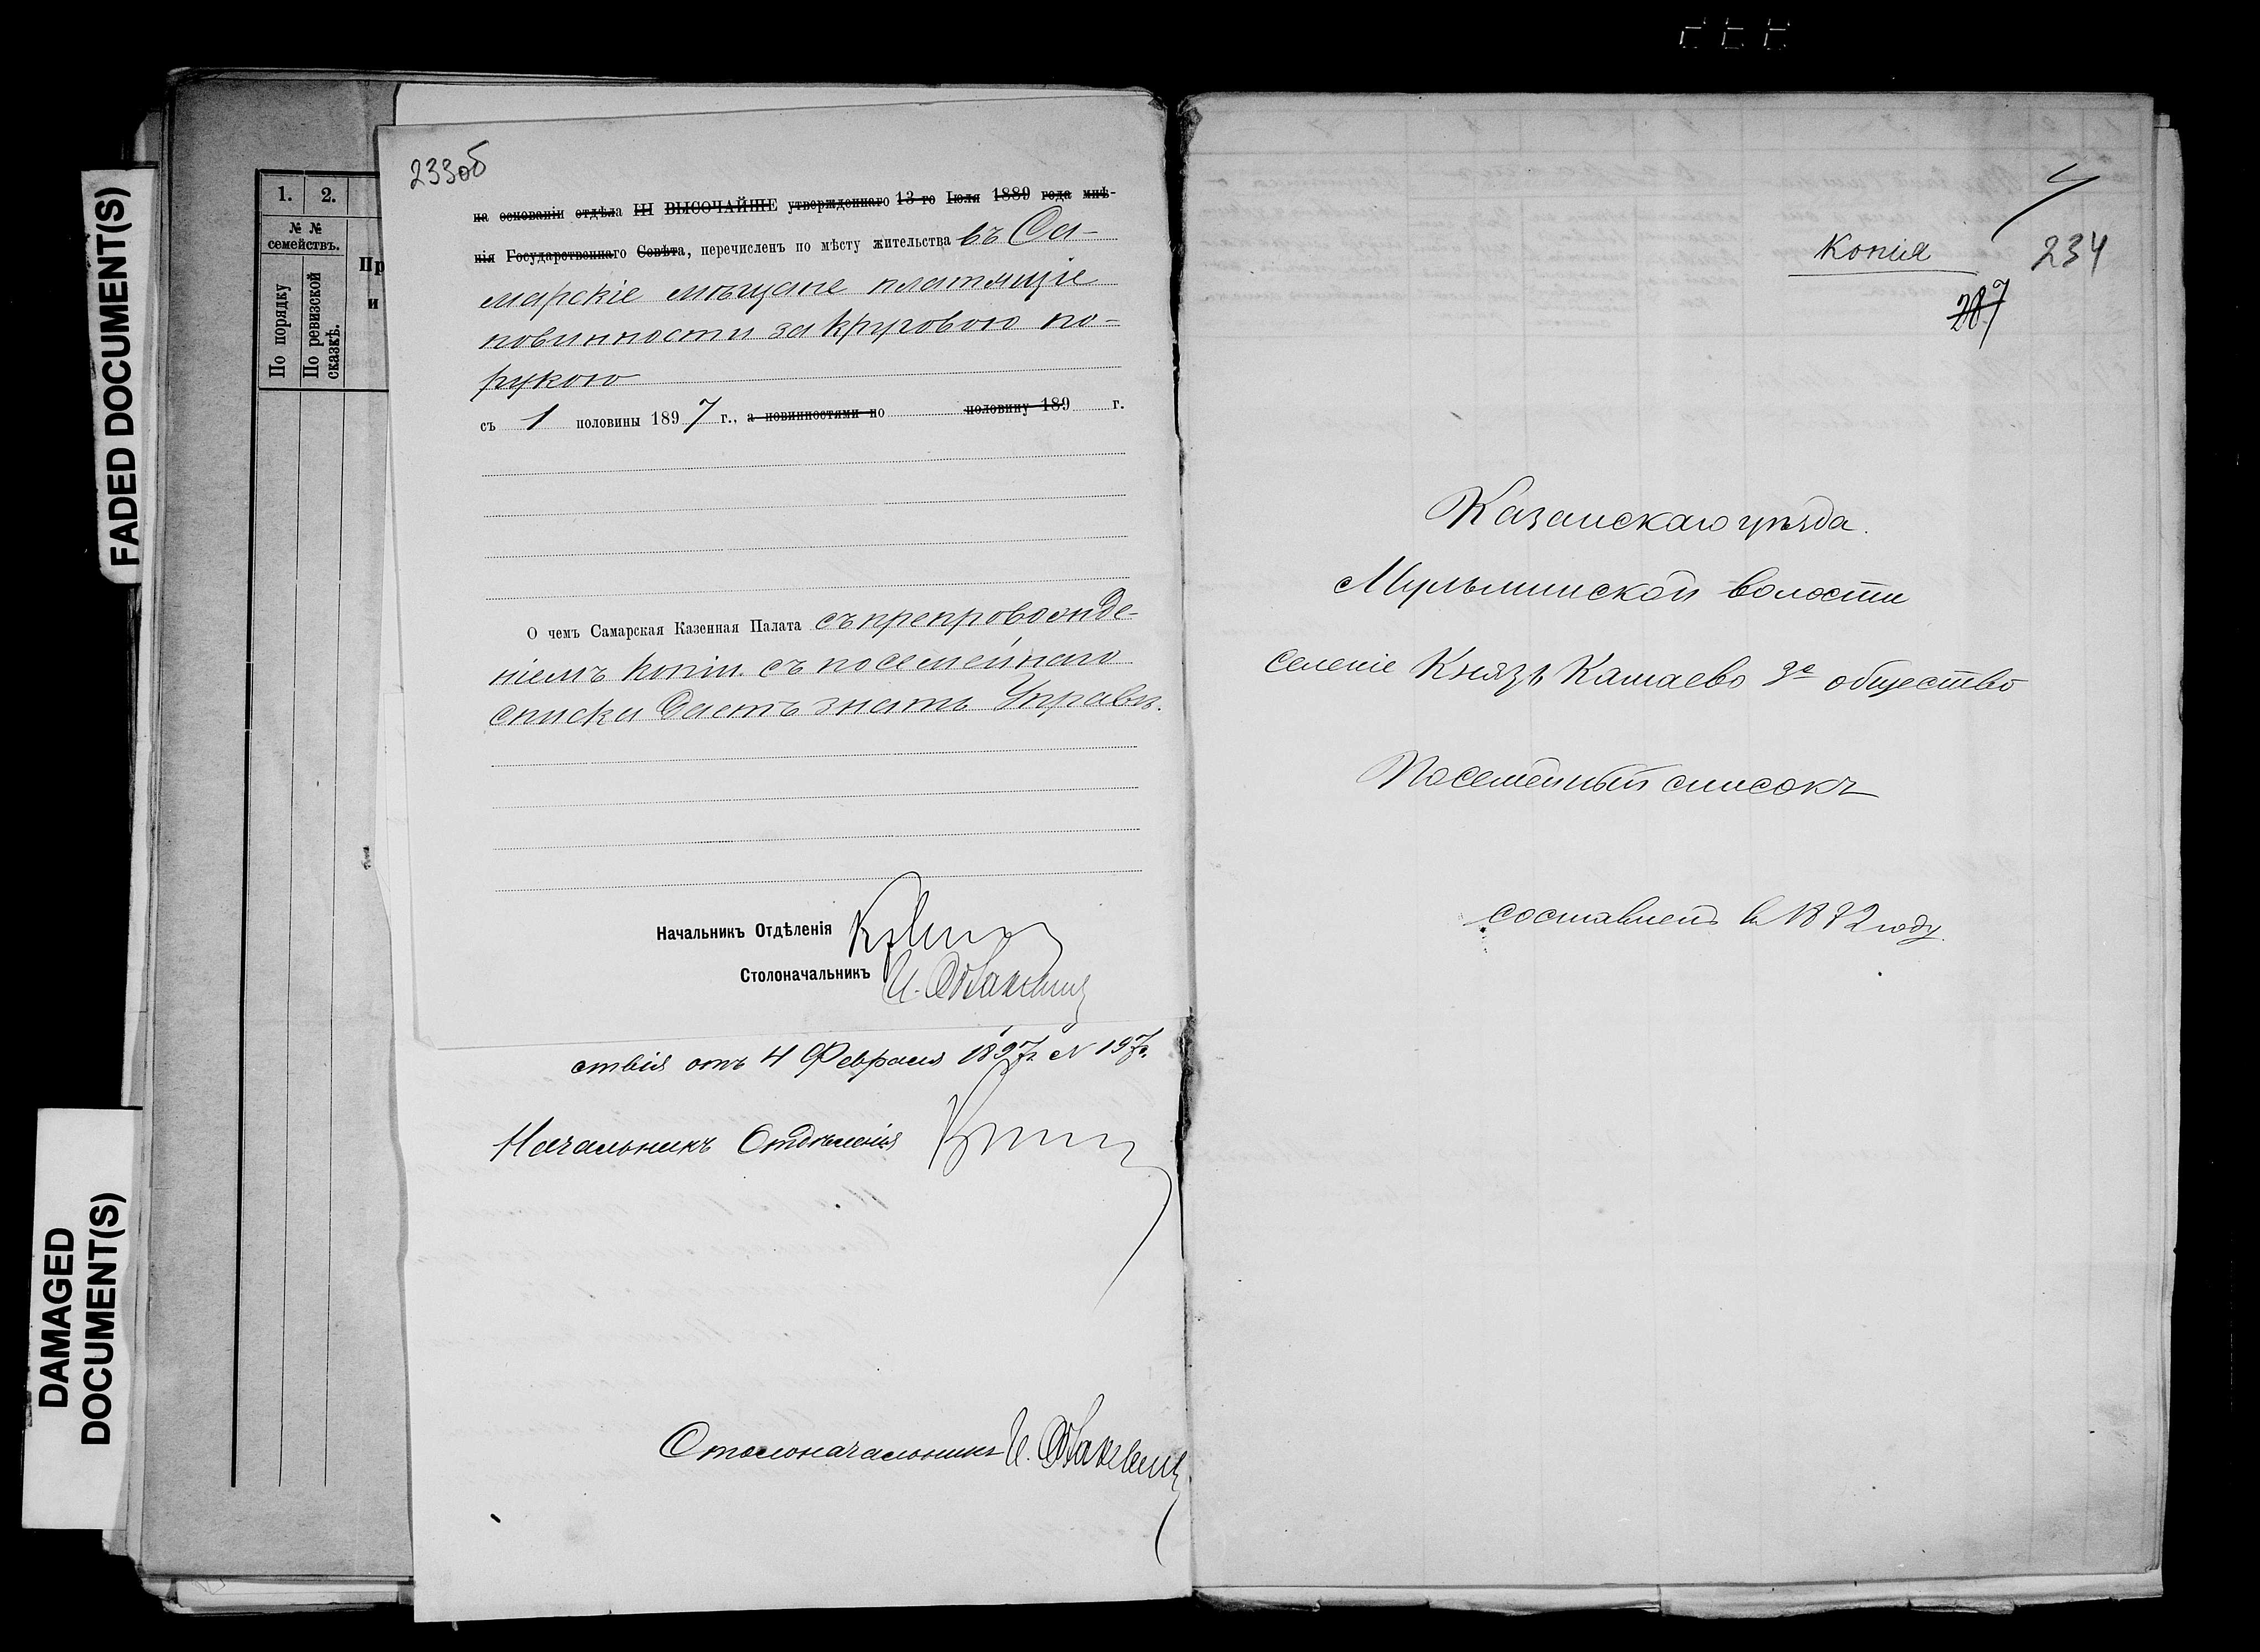 FADED DOCUMENT(S)
DAMAGED
DOCUMENT(S)
1. 2.
№ №
семействъ.
По порядку
По ревизской
сказкѣ.
Пр
и
233об
на основаніи отдѣла III ВЫСОЧАЙШЕ утвержденнаго 13-го Іюля 1889 года мнѣ-
нія Государственнаго Совѣта, перечисленъ по мѣсту жительства въ Са-
марскіе мѣщане платящіе
повинности за круговою по-
рукою
съ 1 половины 1897 г., а повинностями по половину 189 г.
О чемъ Самарская Казенная Палата съ препровожде-
ніемъ копіи съ посемейнаго
списка даетъ знать Управѣ.
Начальникъ Отдѣленія
Столоначальникъ И.
ствія отъ 4 Февраля 1897г. №
Начальникъ Отдѣленія
Столоначальникъ И.
Копія
234
287
Казанскаго уѣзда.
Мульминской волости
Селеніе Князь Камаево общество
Посемейный списокъ
составленъ въ 1872 году.